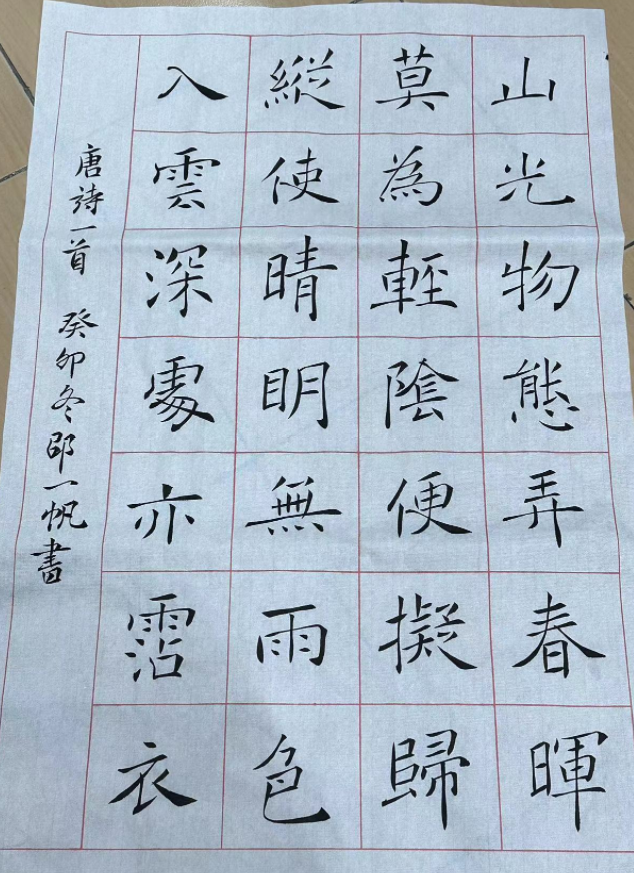 山光物態弄春暉
莫為輕陰便擬歸
縱使晴明無雨色
入雲深處亦霑衣
唐詩一首 癸卯冬邵一帆書